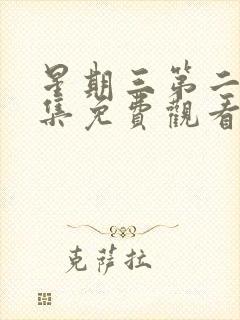 星期三第二
集免費觀看
克薩拉